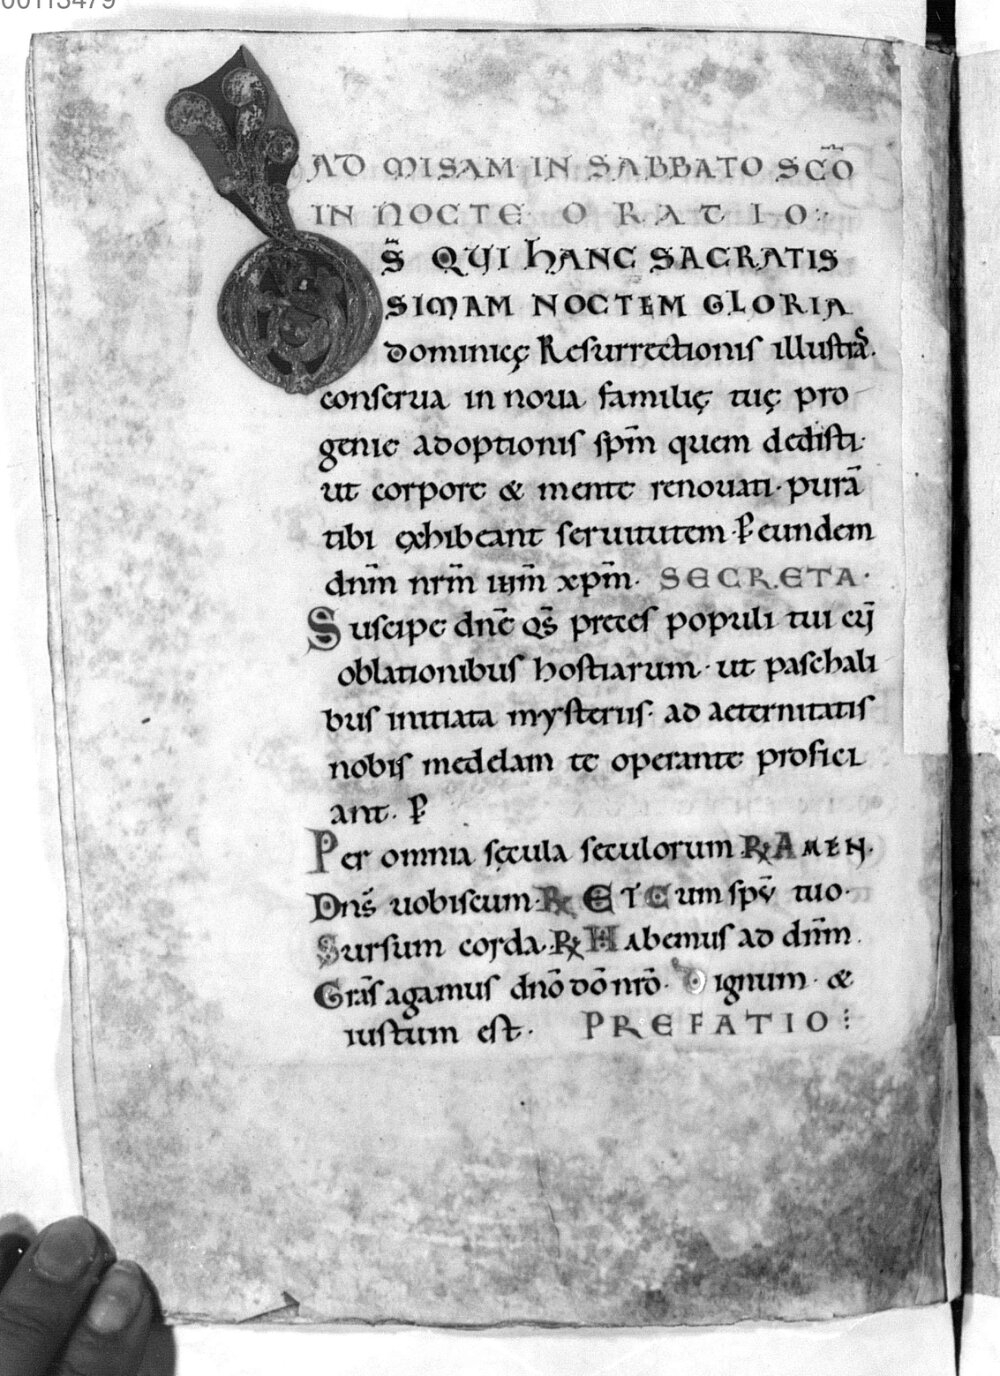 00113479
AD MISAM IN SABBATO SC̅O
IN NOCTE ORATIO:
DS̅ QUI HANC SACRATIS
SIMAM NOCTEM GLORIA
dominicę Resurrectionis illustras.
conserua in noua familię tuę pro
genie adoptionis sp̅m quem dedisti.
ut corpore & mente renouati. purā
tibi exhibeant seruitutem. P̲ eundem
dn̅m nr̅m ih̅m xp̅m. SECRETA.
Suscipe dn̅e qs̅ preces populi tui cu̅
oblationibus hostiarum. ut paschali
bus initiata mysteriis. ad aeternitatis
nobis medelam te operante profici
ant. P̲
Per omnia sęcula seculorum ℟ AMEN.
Dn̅s uobiscum. ℟ ET Cum sp̅u tuo.
Sursum corda. ℟ Habemus ad dn̅m.
Gra̅s agamus dn̅o dō nr̅o. Dignum &
iustum est. PREFATIO: